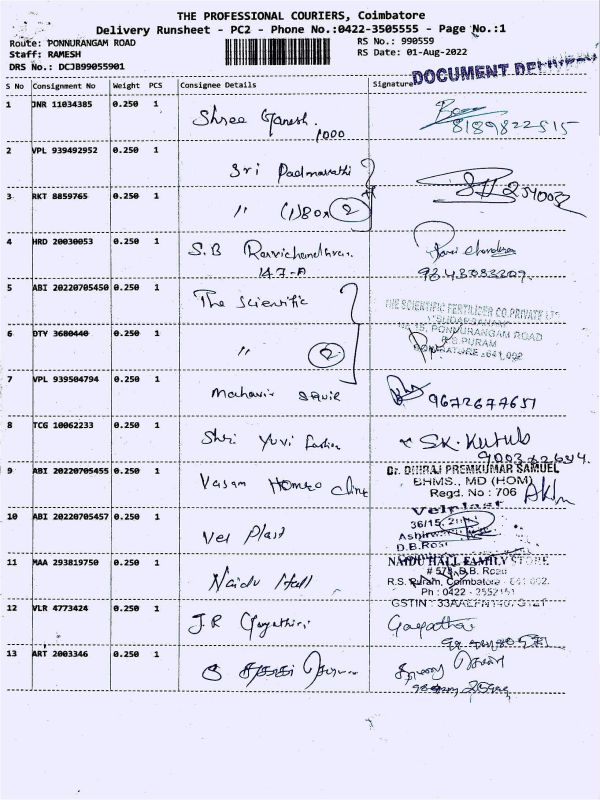 THE PROFESSIONAL COURIERS, Coimbatore
Delivery Runsheet - PC2 - Phone No.:0422-3505555 - Page No.:1
Route: PONNURANGAM ROAD
RS No.: 990559
Staff: RAMESH
RS Date: 01-Aug-2022
DRS No.: DCJB99055901
DOCUMENT DELIVERED
S No Consignment No Weight PCS Consignee Details Signature
1 JNR 11034385 0.250 1 Shree Ganesh.
1000
8189822515
2 VPL 939492952 0.250 1 Sri Padmavathi
3 RKT 8859765 0.250 1 " 2
4 HRD 20030053 0.250 1 S.B Ravichandhran.
147-A
5 ABI 20220705450 0.250 1 The Scientific
THE SCIENTIFIC FERTILISER CO.PRIVATE LTD
"SUDARSANAM"
PONNURANGAM ROAD
R.S.PURAM
COIMBATORE - 641 002
6 DTY 3680440 0.250 1 " 2
7 VPL 939504794 0.250 1 Mahavir
9672677651
8 TCG 10062233 0.250 1 Shri Yuvi Fashion SK. Kutub
9 ABI 20220705455 0.250 1 Vasan Homeo Clinic
Dr. DHIRAJ PREMKUMAR SAMUEL
BHMS., MD (HOM)
Regd. No : 706
10 ABI 20220705457 0.250 1 Vel Plast
Velplast
36/15,
D.B.Road
11 MAA 293819750 0.250 1 Naidu Hall
NAIDU HALL FAMILY STORE
# 575, D.B. Road
R.S. Puram, Coimbatore - 641 002.
Ph : 0422 - 2552151
GSTIN
12 VLR 4773424 0.250 1 J.R Gayathiri Gayathri
13 ART 2003346 0.250 1